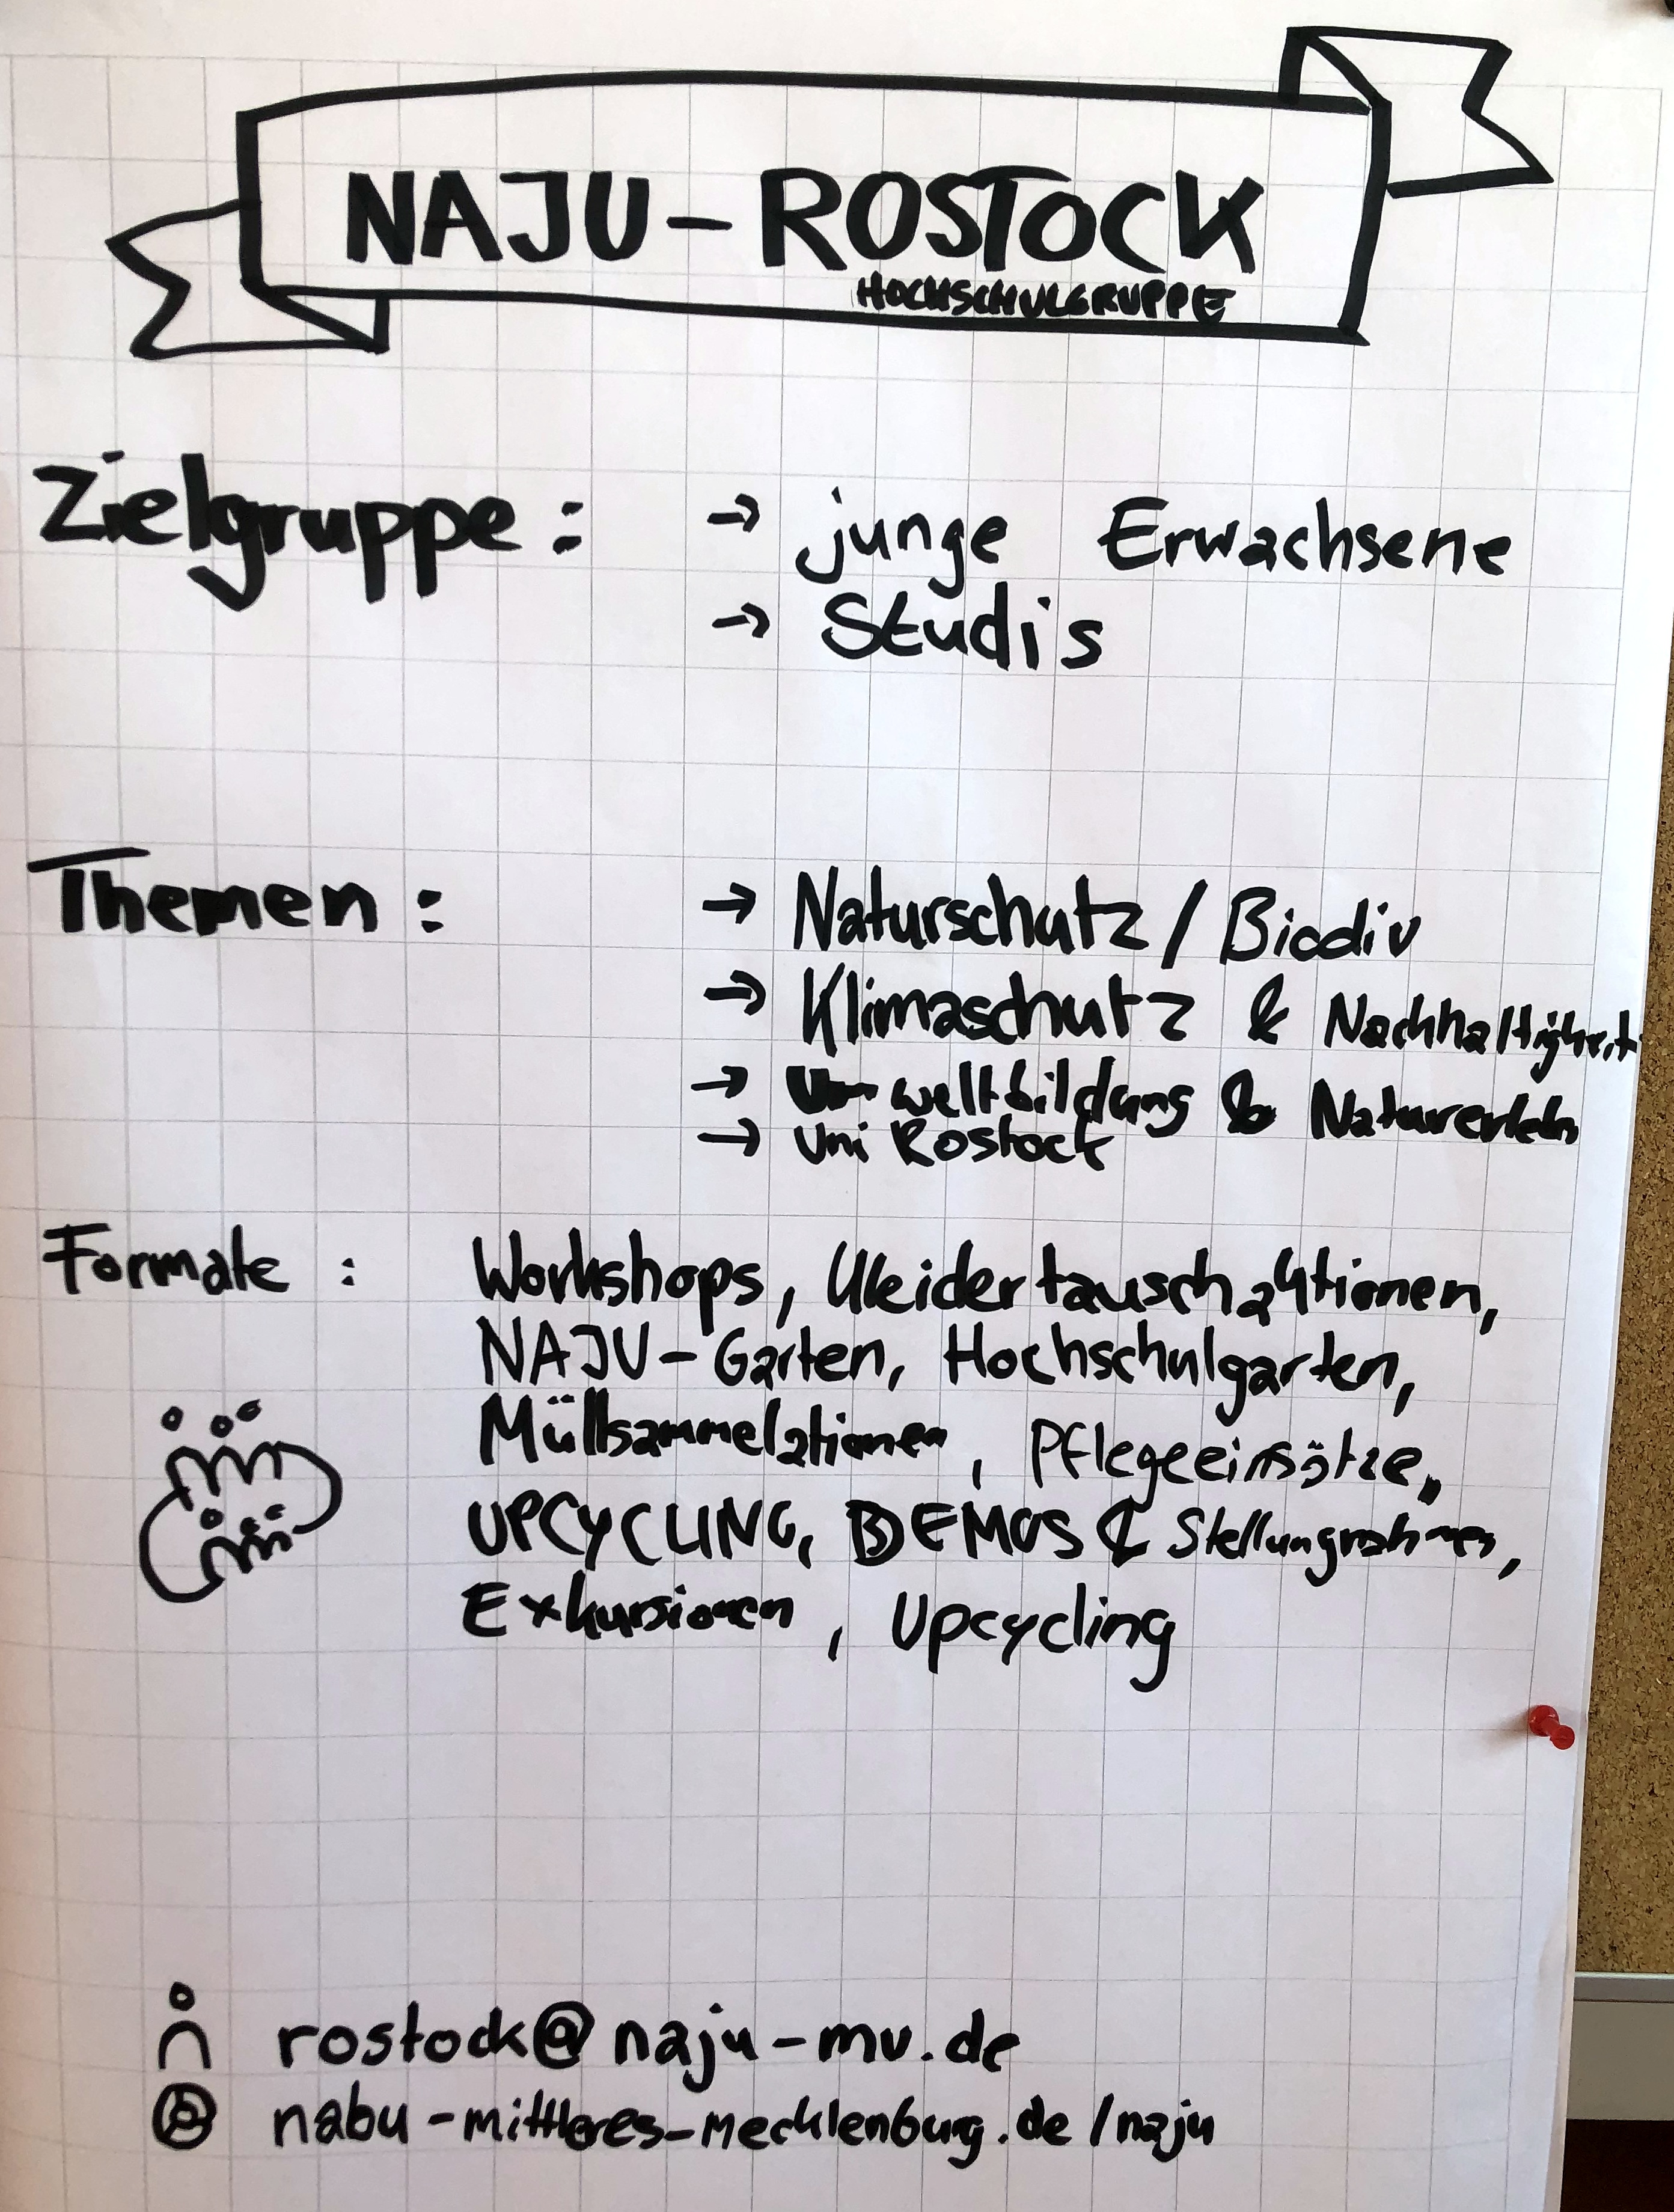 NAJU - ROSTOCK
HOCHSCHULGRUPPE
Zielgruppe : → junge Erwachsene
→ Studis
Themen : → Naturschutz / Biodiv
→ Klimaschutz & Nachhaltigkeit
→ Umweltbildung & Naturerleben
→ Uni Rostock
Formate : Workshops, Kleidertauschaktionen,
NAJU - Garten, Hochschulgarten,
Müllsammelationen, Pflegeeinsätze,
UPCYCLING, DEMOS & Stellungnahmen,
Exkursionen, Upcycling
rostock@naju-mv.de
nabu-mittleres-mecklenburg.de/naju